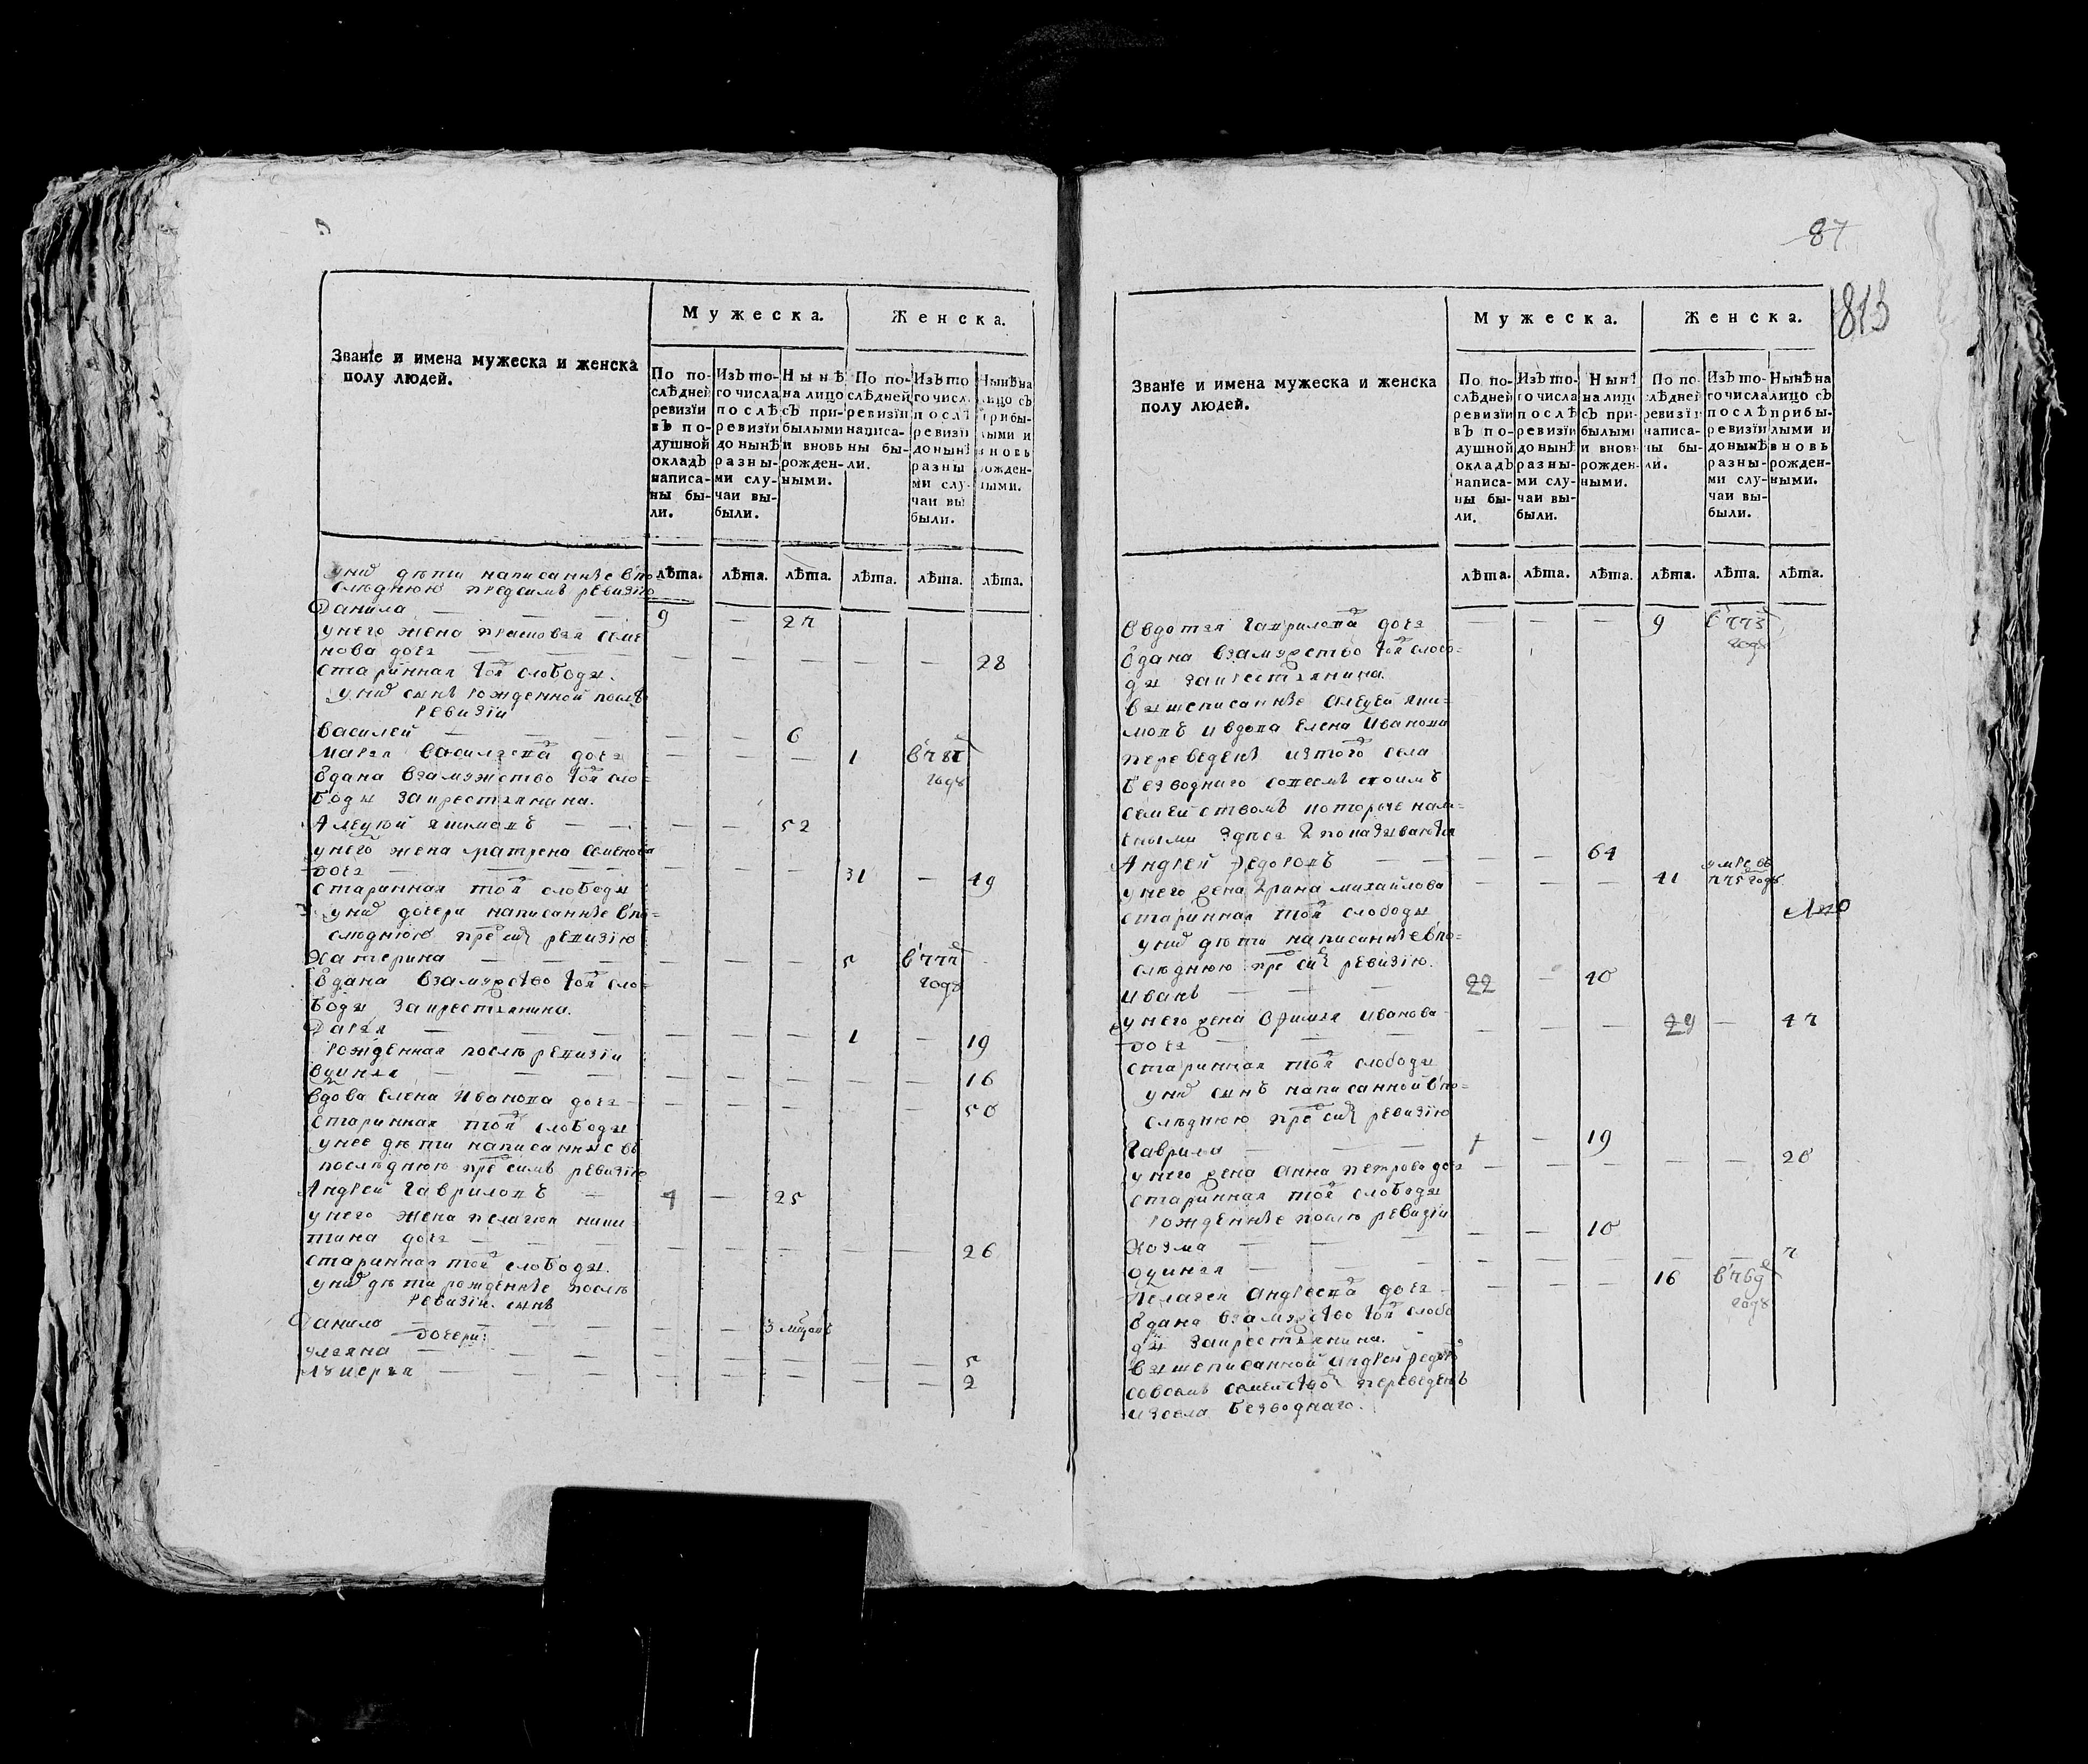 Званіе и имена мужеска и женска
полу людей.
Мужеска.
Женска.
По по-
слѣдней
ревизіи
въ по-
душной
окладъ
написа-
ны бы-
ли.
Изъ то-
го числа
послѣ
ревизіи
до нынѣ
разны-
ми слу-
чаи вы-
были.
Нынѣ
на лицо
съ при-
былыми
и вновь
рожден-
ными.
По по-
слѣдней
ревизіи
написа-
ны бы-
ли.
Изъ то
го числ.
послѣ
ревизіи
до нынѣ
разны
ми слу-
чаи вы
были.
Нынѣ на
лицо съ
прибы-
лыми и
вновь
рожден-
ными.
лѣта. лѣта. лѣта. лѣта. лѣта. лѣта.
у них дѣти написанные в по
слѣднюю пред симъ ревизію
Данила — — — 9 — 27
у него жена Семе
нова дочь — — — — — — — 28
старинная той слободы.
у них сынъ рожденной послѣ
ревизіи
Василей — — — — — 6
Марья Васильева дочь — — — 1
вдана в замужство той сло- годѣ
боды за крестьянина.
Алексей Якимовъ — — — — 52
у него жена Матрена Семенова
дочь — — — — — — 31 — 49
старинная той слободы
у них дочери написанные в по-
слѣднюю пред сим ревизію
Катерина — — — — — — 5 в 777
вдана в замужство той сло- годѣ
боды за крестьянина.
Дарья — — — — — — 1 — 19
рожденная послѣ ревизіи
— — — — — — — — 16
вдова Елена Иванова дочь — — — — — 50
старинная той слободы
у нее дѣти написанные въ
послѣднюю пред симъ ревизію
Андрей Гавриловъ — 4 — 25
у него жена Пелагея Ники
тина дочь — — — — — — — 26
старинная той слободы.
у них дѣти рожденные послѣ
ревизіи. сынъ
Данило — — — — — 3
дочери:
Ульяна — — — — — — — — 5
Лукерья — — — — — — — — 2
87
813
Званіе и имена мужеска и женска
полу людей.
Мужеска.
Женска.
По по-
слѣдней
ревизіи
въ по-
душной
окладъ
написа-
ны бы-
ли.
Изъ то-
го числа
послѣ
ревизіи
до нынѣ
разны-
ми слу-
чаи вы-
были.
Нынѣ
на лицо
съ при-
былыми
и вновь
рожден-
ными.
По по-
слѣдней
ревизіи
написа-
ны бы-
ли.
Изъ то-
го числа
послѣ
ревизіи
до нынѣ
разны-
ми слу-
чаи вы-
были.
Нынѣ на
лицо съ
прибы-
лыми и
вновь
рожден-
ными.
лѣта. лѣта. лѣта. лѣта. лѣта. лѣта.
Овдотья Гаврилова дочь 9 в 773
вдана в замужство той слобо- годѣ
ды за крестьянина.
вышеписанные Алексей Яки-
мовъ и вдова Елена Иванова
переведенъ из того села
Безводнаго со всемъ своимъ
семействомъ которые налич-
ными здесь и показываютца
Андрей Федоровъ — — — — 64
у него жена Ирина Михайлова — — — 41 умре въ 775 годѣ
старинная той слободы
у них дѣти написанные в по-
слѣднюю пред сим ревизію.
Иванъ — — 22 — 40
у него жена Офимья Иванова
дочь — — — — — — 29 — 47
старинная той слободы
у них сынъ написанной в по-
слѣднюю пред сим ревизію
Гаврила — — 1 — 19
у него жена Анна Петрова дочь — — — — — 20
старинная той слободы
рожденные послѣ ревизіи
Козма — — — — — 10
— — — — — — — — 7
Пелагея Андреева дочь — — — 16 в 769
вдана в замужство той слобо годѣ
ды за крестьянина.
вышеписанной Андрей Федоровъ
со всемъ семействомъ переведенъ
из села Безводнаго.